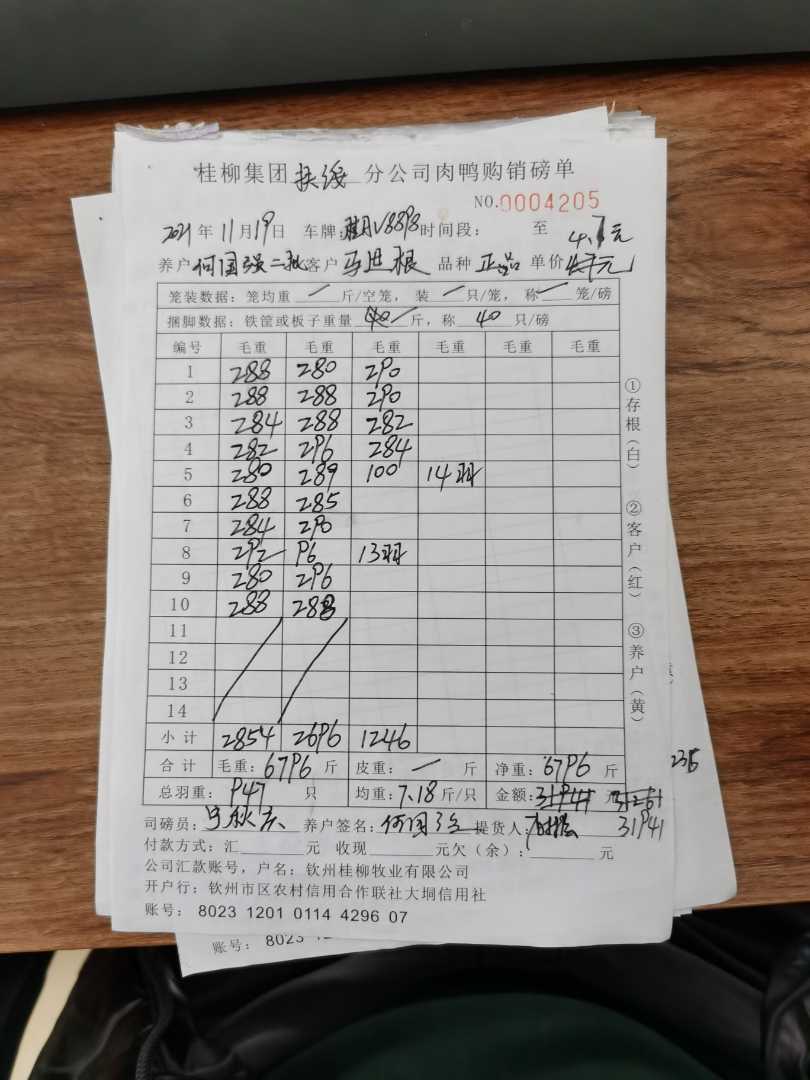 桂柳集团扶绥分公司肉鸭购销磅单
NO.0004205
2021年11月19日 车牌: V8898 时间段: 至 4.7元
养户 何国强二批 客户 马进根 品种 正品 单价
笼装数据: 笼均重 / 斤/空笼, 装 / 只/笼, 称 / 笼/磅
捆脚数据: 铁筐或板子重量 / 斤, 称 40 只/磅
编号 毛重 毛重 毛重 毛重 毛重 毛重
1 288 280 290
2 288 288 290
3 284 288 282
4 282 296 284
5 280 289 100 14羽
6 288 285
7 284 290
8 292 96 13羽
9 280 296
10 288 288
11
12
13
14
小计 2854 2696 1246
合计 毛重: 6796 斤 皮重: / 斤 净重: 6796 斤
总羽重: 947 只 均重: 7.18 斤/只 金额: 31941
司磅员: 养户签名: 何国强 提货人: 31941
付款方式: 汇 元 收现 元欠(余): 元
公司汇款账号, 户名: 钦州桂柳牧业有限公司
开户行: 钦州市区农村信用合作联社大垌信用社
账号: 8023 1201 0114 4296 07
①存根(白)
②客户(红)
③养户(黄)
236
账号: 8023